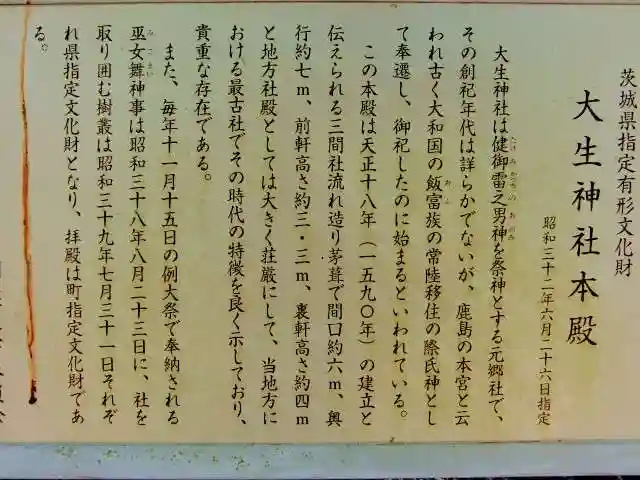 茨城県指定有形文化財
大生神社本殿
昭和三十二年六月二十六日指定
大生神社は健御雷之男神を祭神とする元郷社で、
その創祀年代は詳らかでないが、鹿島の本宮と云
われ古く大和国の飯富族の常陸移住の際氏神とし
て奉遷し、御祀したのに始まるといわれている。
この本殿は天正十八年（一五九〇年）の建立と
伝えられる三間社流れ造り茅葺で間口約六m、奥
行約七m、前軒高さ約三・三m、裏軒高さ約四m
と地方社殿としては大きく荘厳にして、当地方に
おける最古社でその時代の特徴を良く示しており、
貴重な存在である。
また、毎年十一月十五日の例大祭で奉納される
巫女舞神事は昭和三十八年八月二十三日に、社を
取り囲む樹叢は昭和三十九年七月三十一日それぞ
れ県指定文化財となり、拝殿は町指定文化財であ
る。